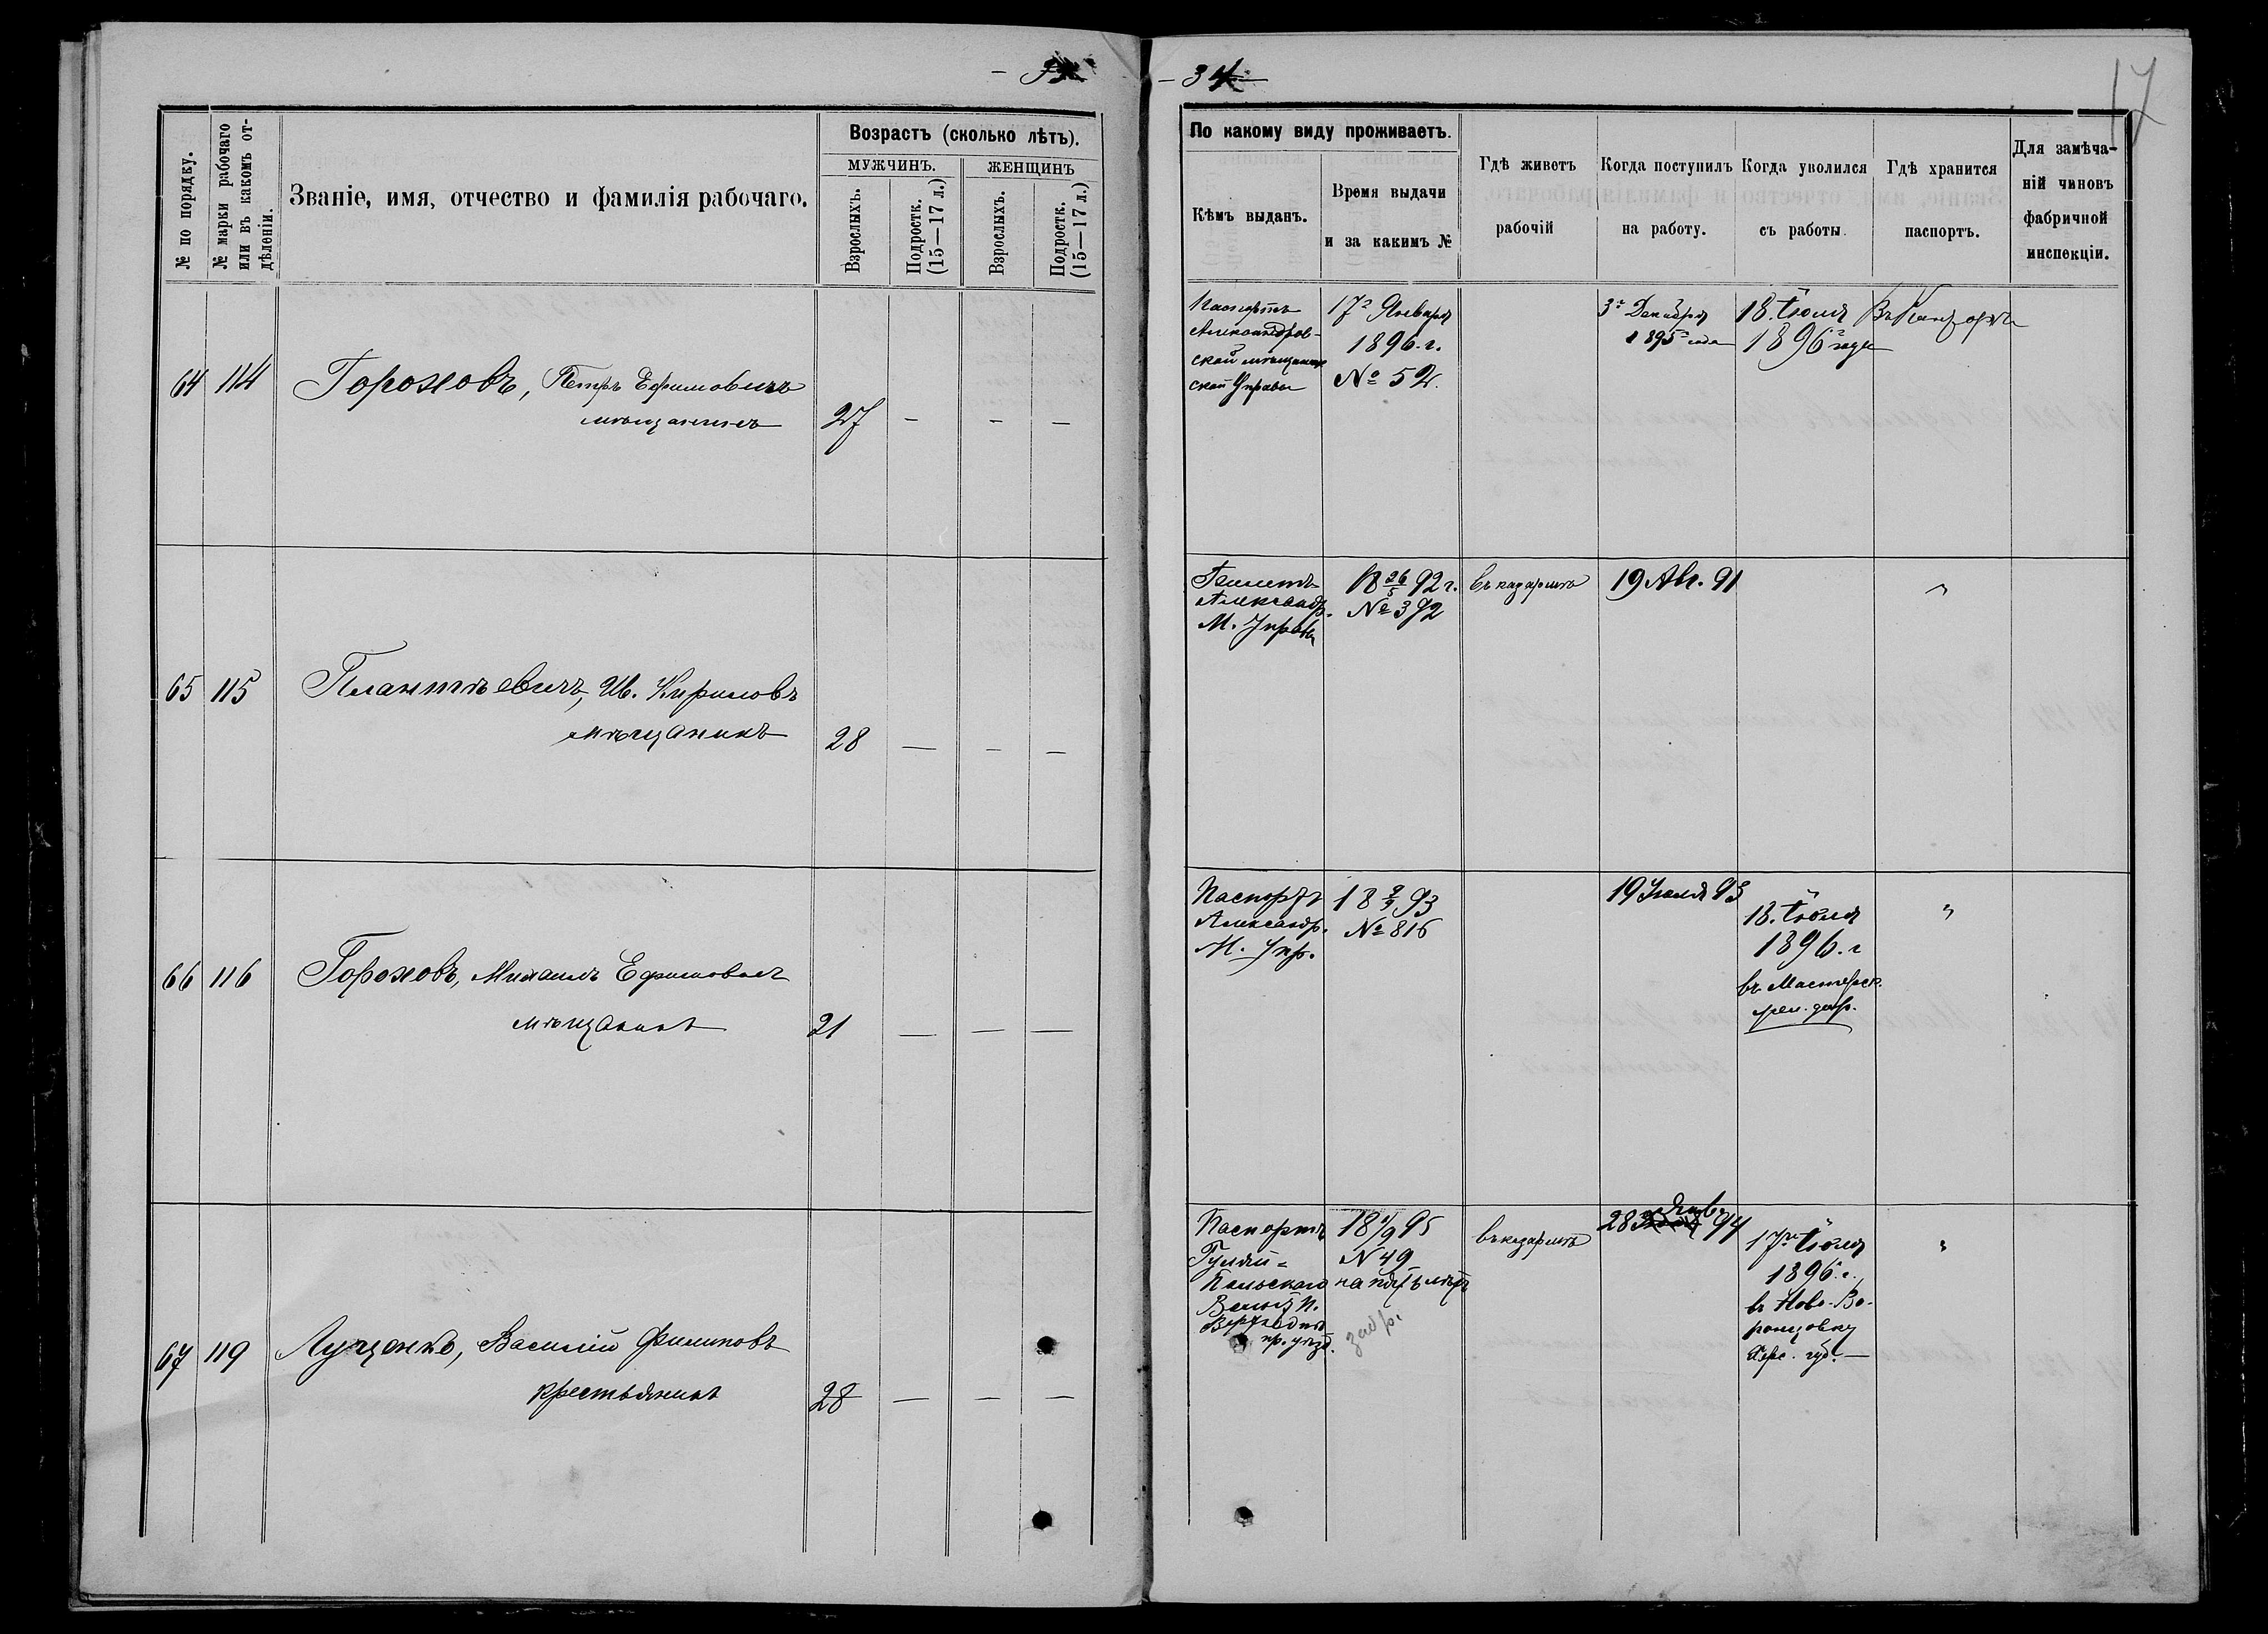 — 34
17
№ по порядку.
№ марки рабочаго или въ какомъ отдѣленіи.
Званіе, имя, отчество и фамилія рабочаго.
Возрастъ (сколько лѣтъ).
МУЖЧИНЪ.
ЖЕНЩИНЪ
Взрослыхъ.
Подростк. (15—17 л.)
Взрослыхъ.
Подростк. (15—17 л.)
По какому виду проживаетъ.
Кѣмъ выданъ.
Время выдачи
и за какимъ №
Гдѣ живетъ
рабочій
Когда поступилъ
на работу.
Когда уволился
съ работы.
Гдѣ хранится
паспортъ.
Для замѣча-
ній чиновъ
фабричной
инспекціи.
64 114 Гороховъ, Петръ Ефимовичъ
мѣщанинъ
27 — — —
Паспортъ
Александров-
ской мѣщан
ской Управы
17го Января
1896. г.
№ 52.
3го Декабря
1895го года
18. Іюля
1896 года
Въ Конторѣ
65 115 Плантѣевичъ, Ив. Кириловъ
мѣщанинъ
28 — — —
Билетъ
Александр.
М. Управы
18 26/5 92 г.
№ 392
въ казармѣ
19 Авг. 91
"
66 116 Гороховъ, Михаилъ Ефимовичъ
мѣщанинъ
21 — — —
Паспортъ
Александр.
М. Упр.
18 93
№ 816
19 Іюля 93
18. Іюля
1896. г
въ Мастерск.
"
67 119 Луценко, Василій Филиповъ
крестьянинъ
28 — — —
Паспортъ
Гуляй-
Польскаго
Волост. п.
Верхнеднѣ
пр. уѣзд.
18 1/9 95
N 49
на пять лѣтъ
въ казармѣ
28 Янв. 94
17го Іюля
1896. г.
въ Ново-Во-
ронцовку
Херс. губ. —
"